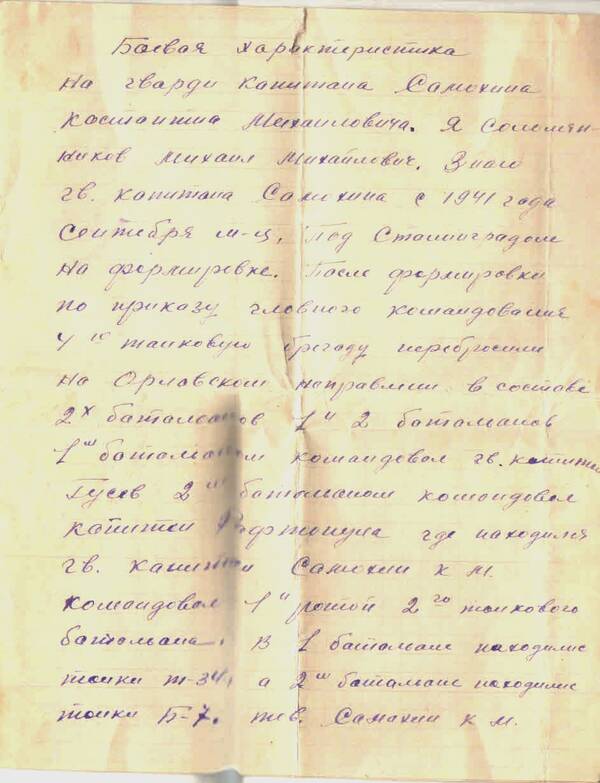 Боевая характеристика
на гварди капитана Самохина
Костантина Михаиловича. Я Соломян-
ников Михаил Михайлович. Знаю
гв. капитана Самохина с 1941 года
Сентября м-ц, Под Сталинградом
на формировке. После формировки
по приказу главного командования
4ю танковую бригаду перебросили
на Орловском направлении в составе
2х баталионов 1й 2 баталионов
1м баталионом командовал гв. капитан
Гусев 2м баталионом командовал
капитан где находился
гв. капитан Самохин К М.
командовал 1й ротой 2го танкового
баталиона. В 1 баталионе находились
танки т-34, а 2м баталионе находились
танки Б-7. тов. Самохин К М.